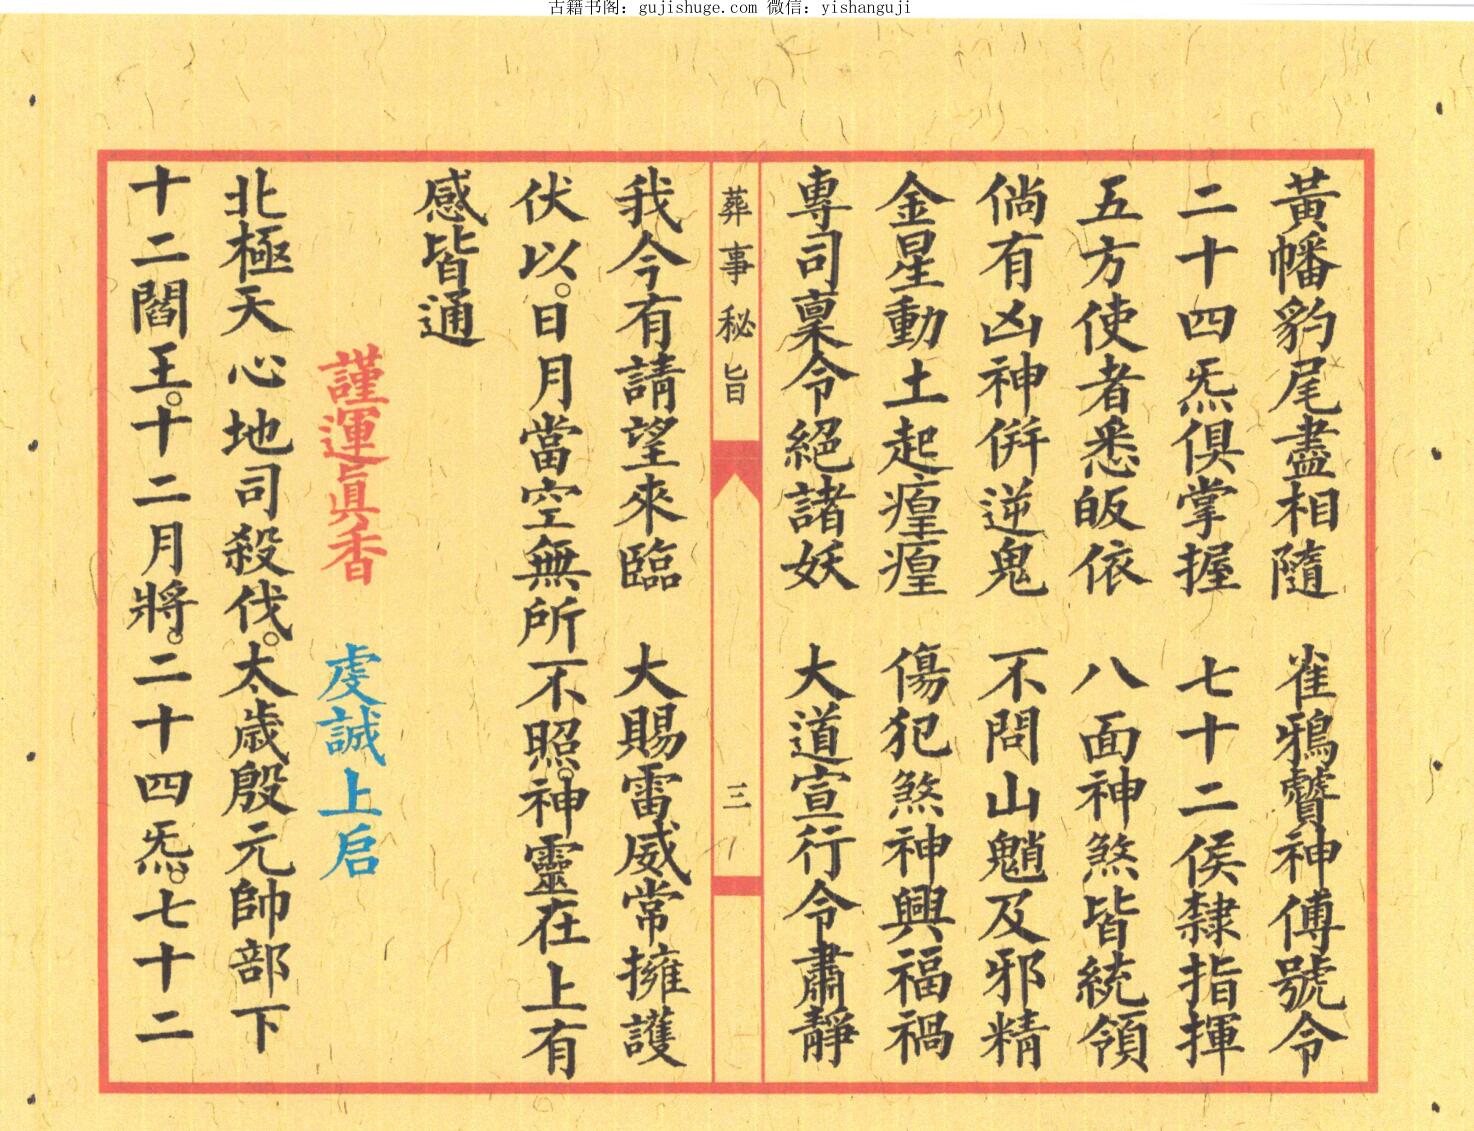 古籍书阁：gujishuge.com 微信：yishanguji
黃幡豹尾盡相隨　雀鴉聲神傅號令
二十四炁俱掌握　七十二侯隸指揮
五方使者悉皈依　八面神煞皆統領
倘有凶神併逆鬼　不問山魈及邪精
金星動土起瘟瘟　傷犯煞神興福禍
專司稟令絕諸妖　大道宣行令肅靜
葬事秘旨　三
我今有請望來臨　大賜雷威常擁護
伏以。日月當空無所不照。神靈在上有
感皆通
謹運眞香　虔誠上启
北極天心地司殺伐。太歲殷元帥部下
十二閻王。十二月將。二十四炁。七十二